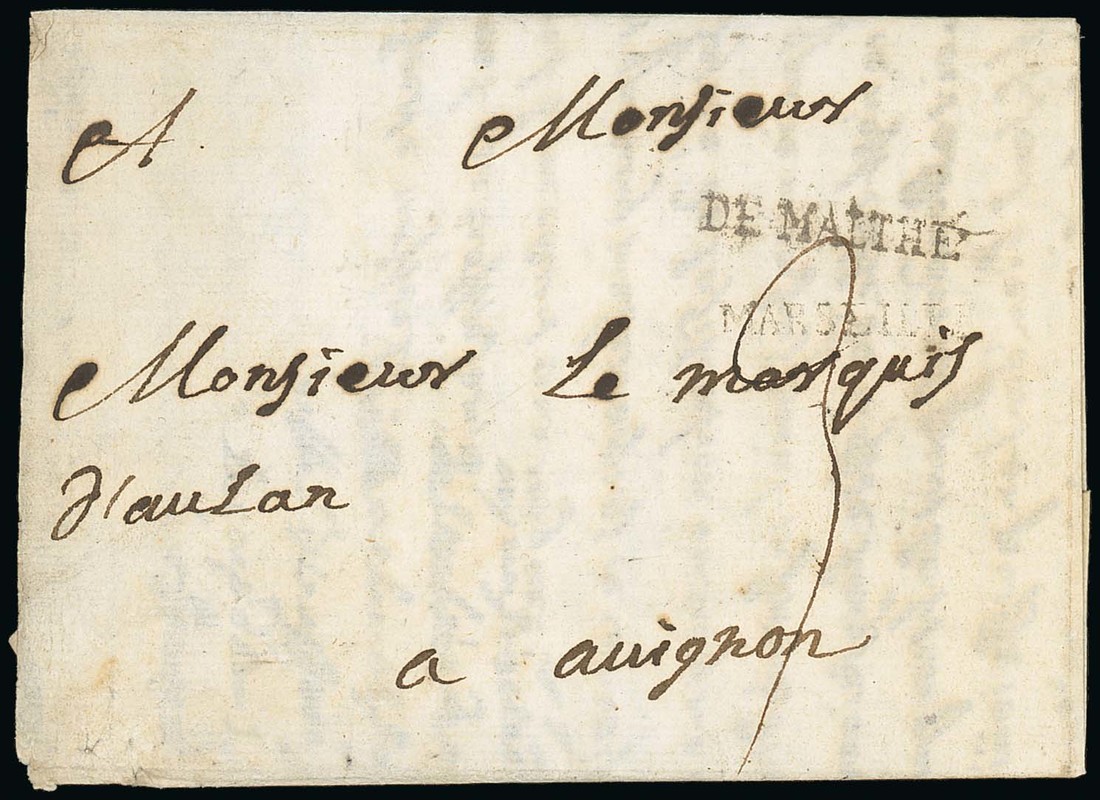 A Monsieur
DE MALTHE
MARSEILLE
Monsieur Le marquis
d'aulan
a auignon